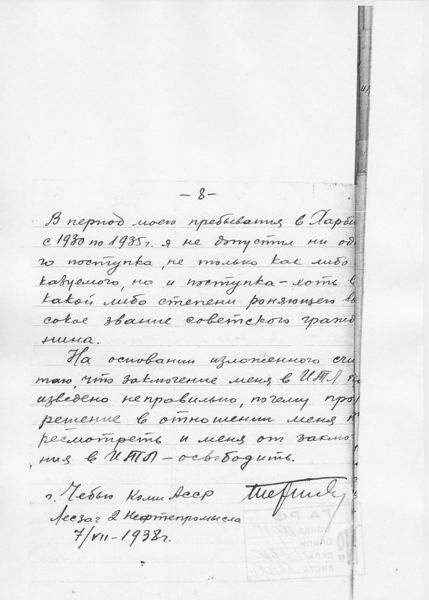 - 8 -
В период моего пребывания в Харби
с 1930 по 1935 г. я не допустил ни од
го поступка, не только как либо
казуемого, но и поступка - хоть в
какой либо степени роняющего вы
сокое звание советского гражд
нина.
На основании изложенного счи
таю, что заключение меня в ИТЛ пр
изведено неправильно, почему про
решение в отношении меня п
ресмотреть и меня от заклю
ния в ИТЛ - освободить.
г. Чебью Коми АССР
Лесзаг 2 Нефтепромысла
7/VII - 1938 г.
ГАРФ